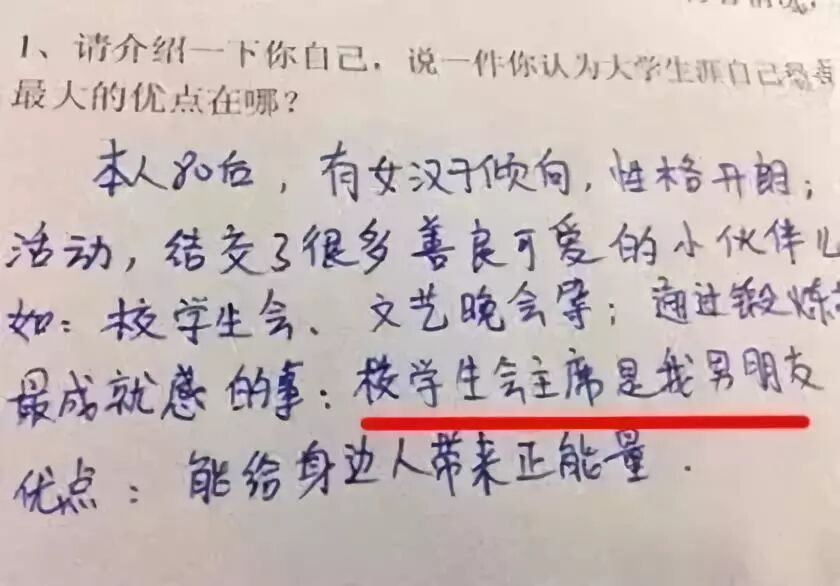 1、请介绍一下你自己,说一件你认为大学生涯自己最有
最大的优点在哪?
本人80后,有女汉子倾向,性格开朗;
活动,结交了很多善良可爱的小伙伴儿
如:校学生会、文艺晚会等;通过锻炼
最成就感的事:校学生会主席是我男朋友
优点:能给身边人带来正能量.